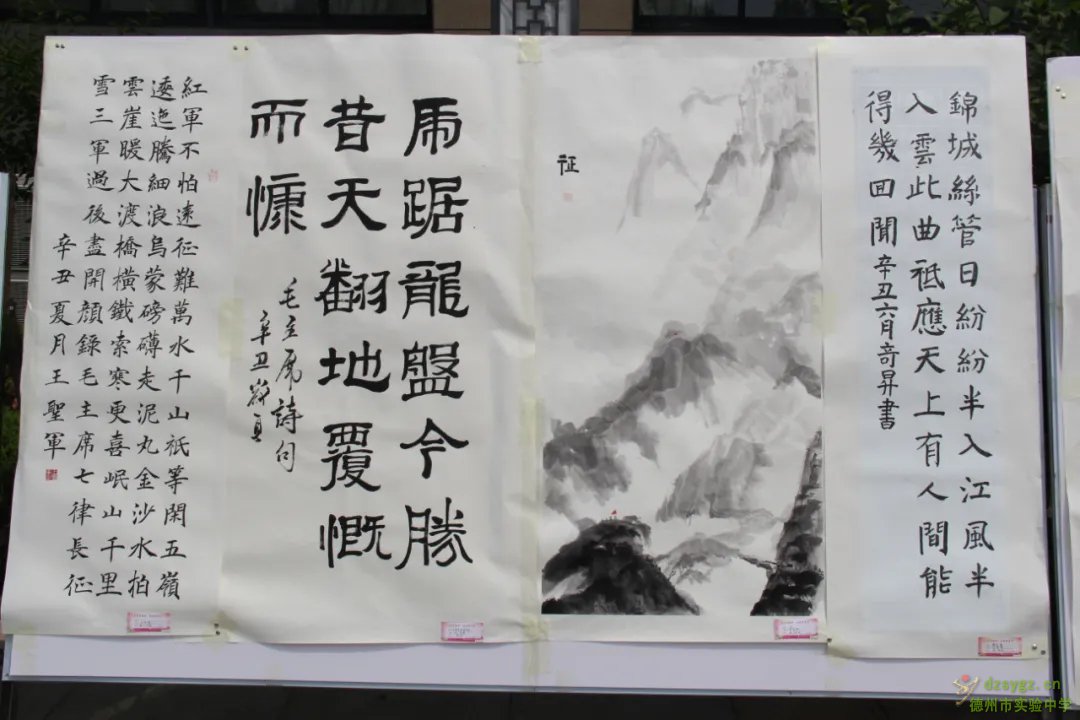 紅軍不怕遠征難萬水千山祇等閑五嶺
逶迤騰細浪烏蒙磅礴走泥丸金沙水拍
雲崖暖大渡橋橫鐵索寒更喜岷山千里
雪三軍過後盡開顏錄毛主席七律長征
辛丑夏月王聖軍
虎踞龍盤今勝
昔天翻地覆慨
而慷
毛主席詩句
辛丑
征
錦城絲管日紛紛半入江風半
入雲此曲祗應天上有人間能
得幾回聞辛丑六月奇昇書
dzsygz.cn
德州市实验中学